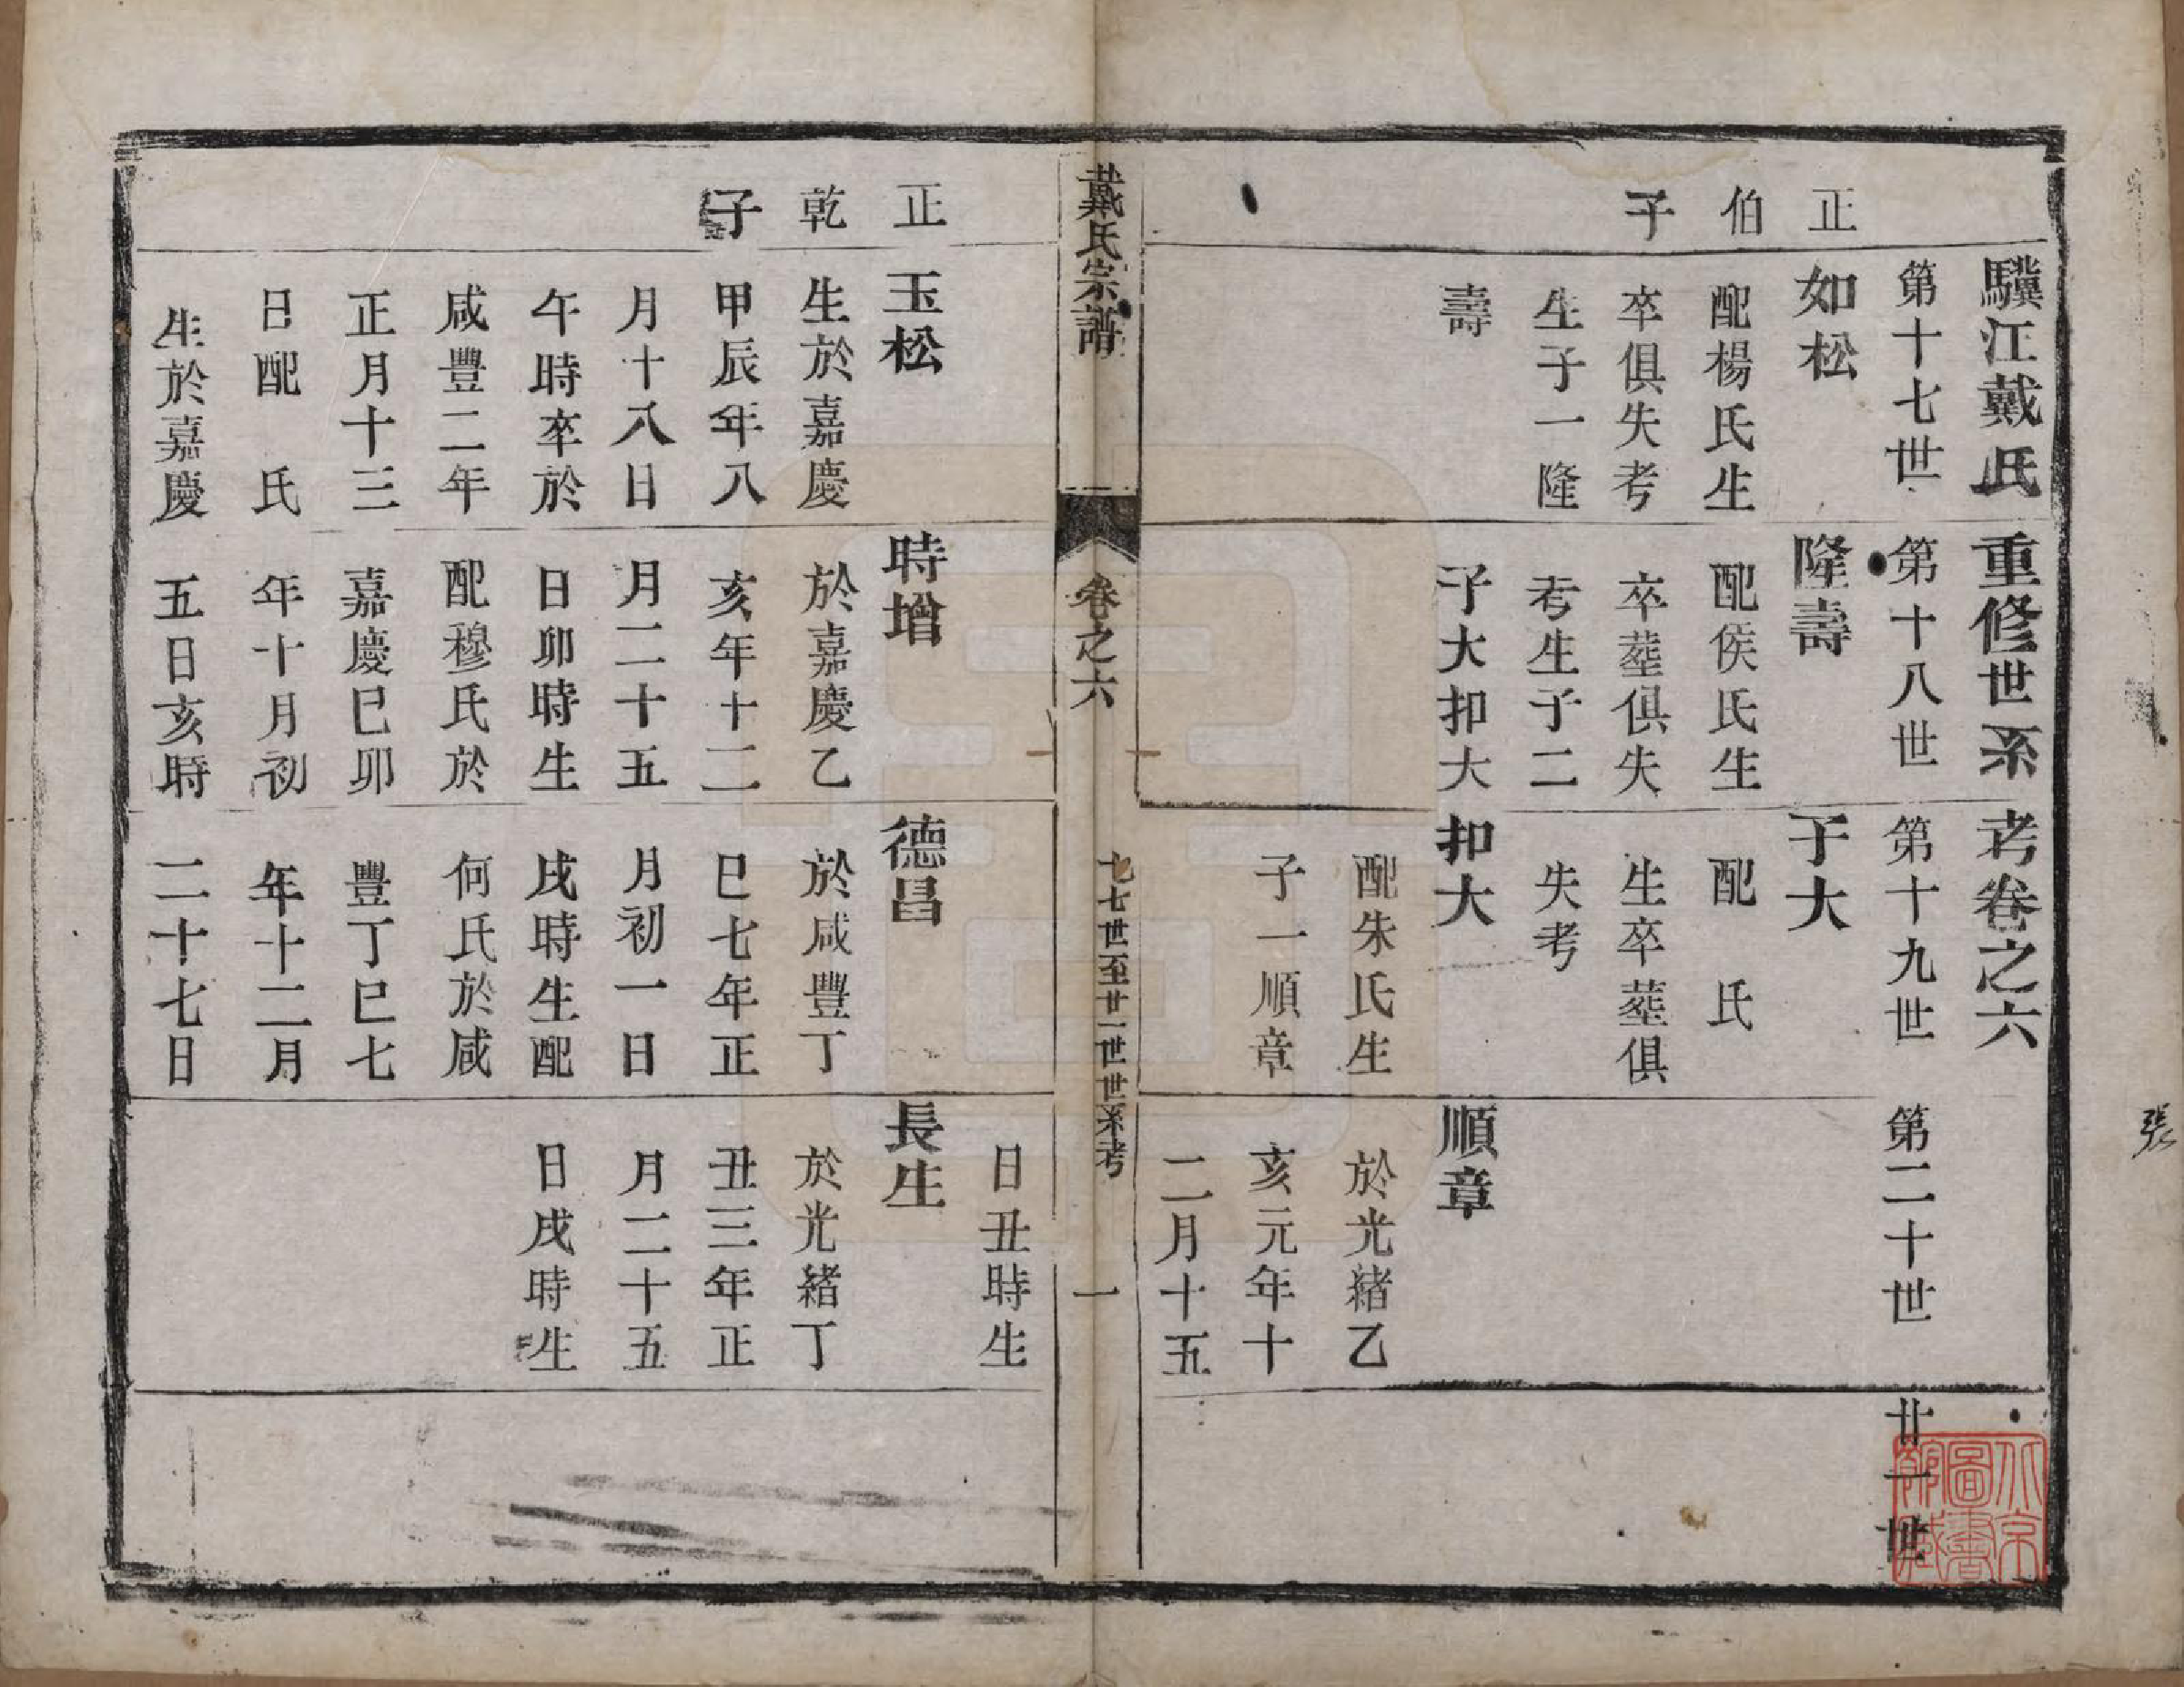 驥江戴氏重修世系考卷之六
第十七世
第十八世
第十九世
第二十世
廿一世
正伯子
如松
配楊氏生
卒俱失考
生子一隆
壽
隆壽
配侯氏生
卒塟俱失
考生子二
子大扣大
子大
配 氏
生卒塟俱
失考
扣大
配朱氏生
子一順章
順章
於光緒乙
亥元年十
二月十五
日丑時生
戴氏宗譜 卷之六 十七世至廿一世世系考 一
正乾子
玉松
生於嘉慶
甲辰年八
月十八日
午時卒於
咸豐二年
正月十三
日配 氏
生於嘉慶
時增
於嘉慶乙
亥年十二
月二十五
日卯時生
配穆氏於
嘉慶巳卯
年十月初
五日亥時
德昌
於咸豐丁
巳七年正
月初一日
戌時生配
何氏於咸
豐丁巳七
年十二月
二十七日
長生
於光緒丁
丑三年正
月二十五
日戌時生
北京圖書館藏
張